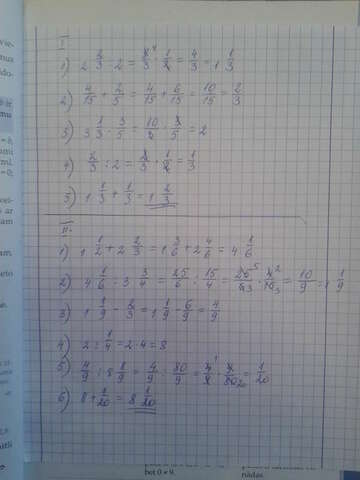 I
1) 2 2/3 : 2 = 8/3 · 1/2 = 4/3 = 1 1/3
2) 4/15 + 2/5 = 4/15 + 6/15 = 10/15 = 2/3
3) 3 1/3 · 3/5 = 10/3 · 3/5 = 2
4) 2/3 : 2 = 2/3 · 1/2 = 1/3
5) 1 1/3 + 1/3 = 1 2/3
II.
1) 1 1/2 + 2 2/3 = 1 3/6 + 2 4/6 = 4 1/6
2) 4 1/6 : 3 3/4 = 25/6 : 15/4 = 25/6 · 4/15 = 10/9 = 1 1/9
3) 1 1/9 - 2/3 = 1 1/9 - 6/9 = 4/9
4) 2 : 1/4 = 2 · 4 = 8
5) 4/9 : 8 8/9 = 4/9 : 80/9 = 4/9 · 9/80 = 1/20
6) 8 + 1/20 = 8 1/20
bet 0 ≠ 9.